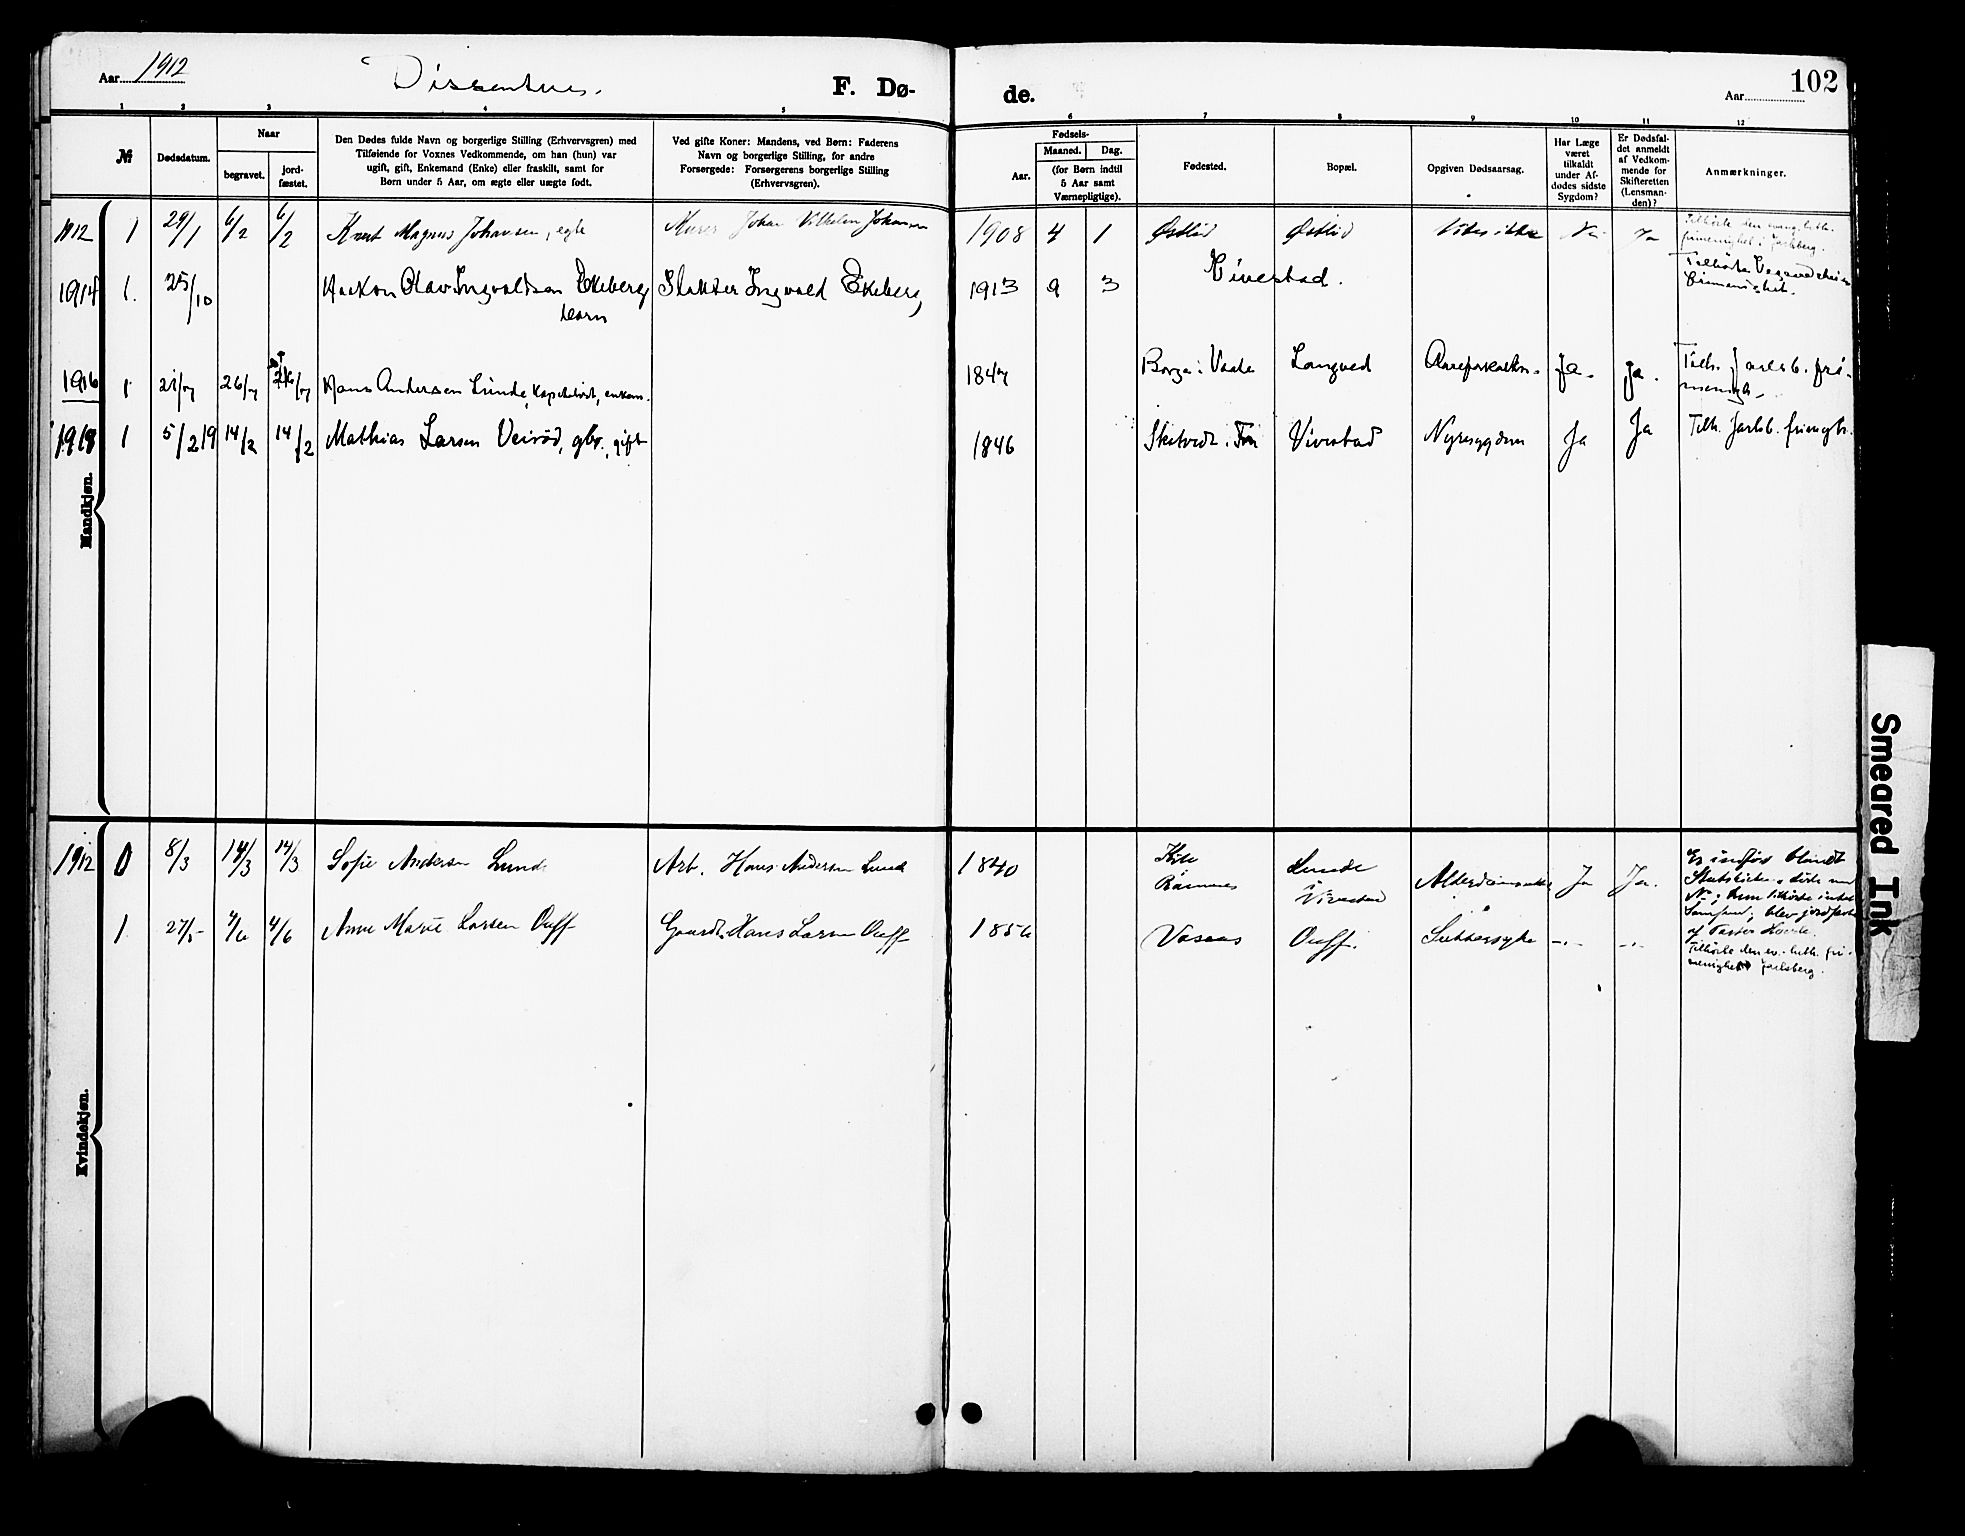 Aar 1912
Dissentere.
F. Dø-
de.
Aar
102
1 2 3 4 5 6 7 8 9 10 11 12
№
Dødsdatum.
Naar
begravet.
jord-
fæstet.
Den Dødes fulde Navn og borgerlige Stilling (Erhvervsgren) med
Tilføiende for Voxnes Vedkommende, om han (hun) var
ugift, gift, Enkemand (Enke) eller fraskilt, samt for
Børn under 5 Aar, om ægte eller uægte født.
Ved gifte Koner: Mandens, ved Børn: Faderens
Navn og borgerlige Stilling, for andre
Forsørgede: Forsørgerens borgerlige Stilling
(Erhvervsgren).
Fødsels-
Aar.
Maaned.
Dag.
(for Børn indtil
5 Aar samt
Værnepligtige).
Fødested.
Bopæl.
Opgiven Dødsaarsag.
Har Læge
været
tilkaldt
under Af-
dødes sidste
Sygdom?
Er Dødsfal-
det anmeldt
af Vedkom-
mende for
Skifteretten
(Lensman-
den)?
Anmærkninger.
Mandkjøn.
1912 1 29/1 6/2 6/2 Knut Magnus Johansen, egte Murer Johan Vilhelm Johansen 1908 4 1 Østlid Østlid Vides ikke Nei Ja
Tilhørte den evang. luth.
frimenighet i Jarlsberg.
1914 1. 25/10 Haakon Olav Ingvaldsen Ekeberg Slakter Ingvald Ekeberg, 1913 9 3 Vivestad.
barn
Tilhørte
frimenighet.
1916 1 21/7 26/7 26/7 Hans Andersen Lunde, enkem. 1847 Borge i Vaale Langved Aareforkalkn. Ja. Ja. Tilh. Jarlsb. fri-
menigh.
1918 1 5/2 19 14/2 14/2 Mathias Larsen Veirød, gbr., gift 1846 Skatvedt i Vivestad Nyresygdom Ja Ja Tilh. Jarlsb. frimegh.
Kvindekjøn.
1912 0 8/3 14/3 14/3 Sofie Andersen Lunde Arb. Hans Andersen Lunde 1840
Ramnes
Lunde
i
Vivestad
Ja Ja.
Er indført blandt
Statskirkens døde under
N ; hun tilhørte intet
Samfund; blev jordfæstet
af Pastor
1 27/5 4/6 4/6 Anne Marie Larsen Ouff Gaardb. Hans Larsen Ouff 1856 Vasaas Ouff. Sukkersyke -"- -"-
Tilhørte den ev. luth. fri-
menighet i Jarlsberg.
Smeared Ink